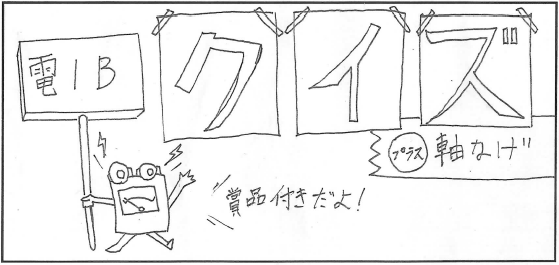 電1B
クイズ
プラス 軸なげ
賞品付きだよ!